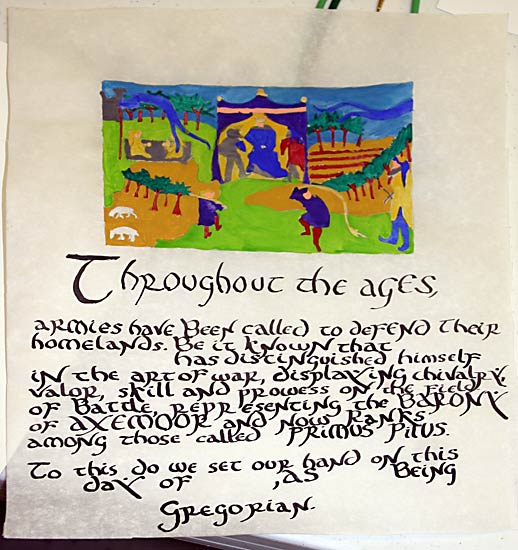 Throughout the ages,
armies have been called to defend their
homelands. Be it known that
has distinguished himself
in the art of war, displaying chivalry,
valor, skill and prowess on the field
of battle, representing the BARONY
of AXEMOOR and now ranks
among those called PRIMUS PILUS.
To this do we set our hand on this
day of , as being
Gregorian.